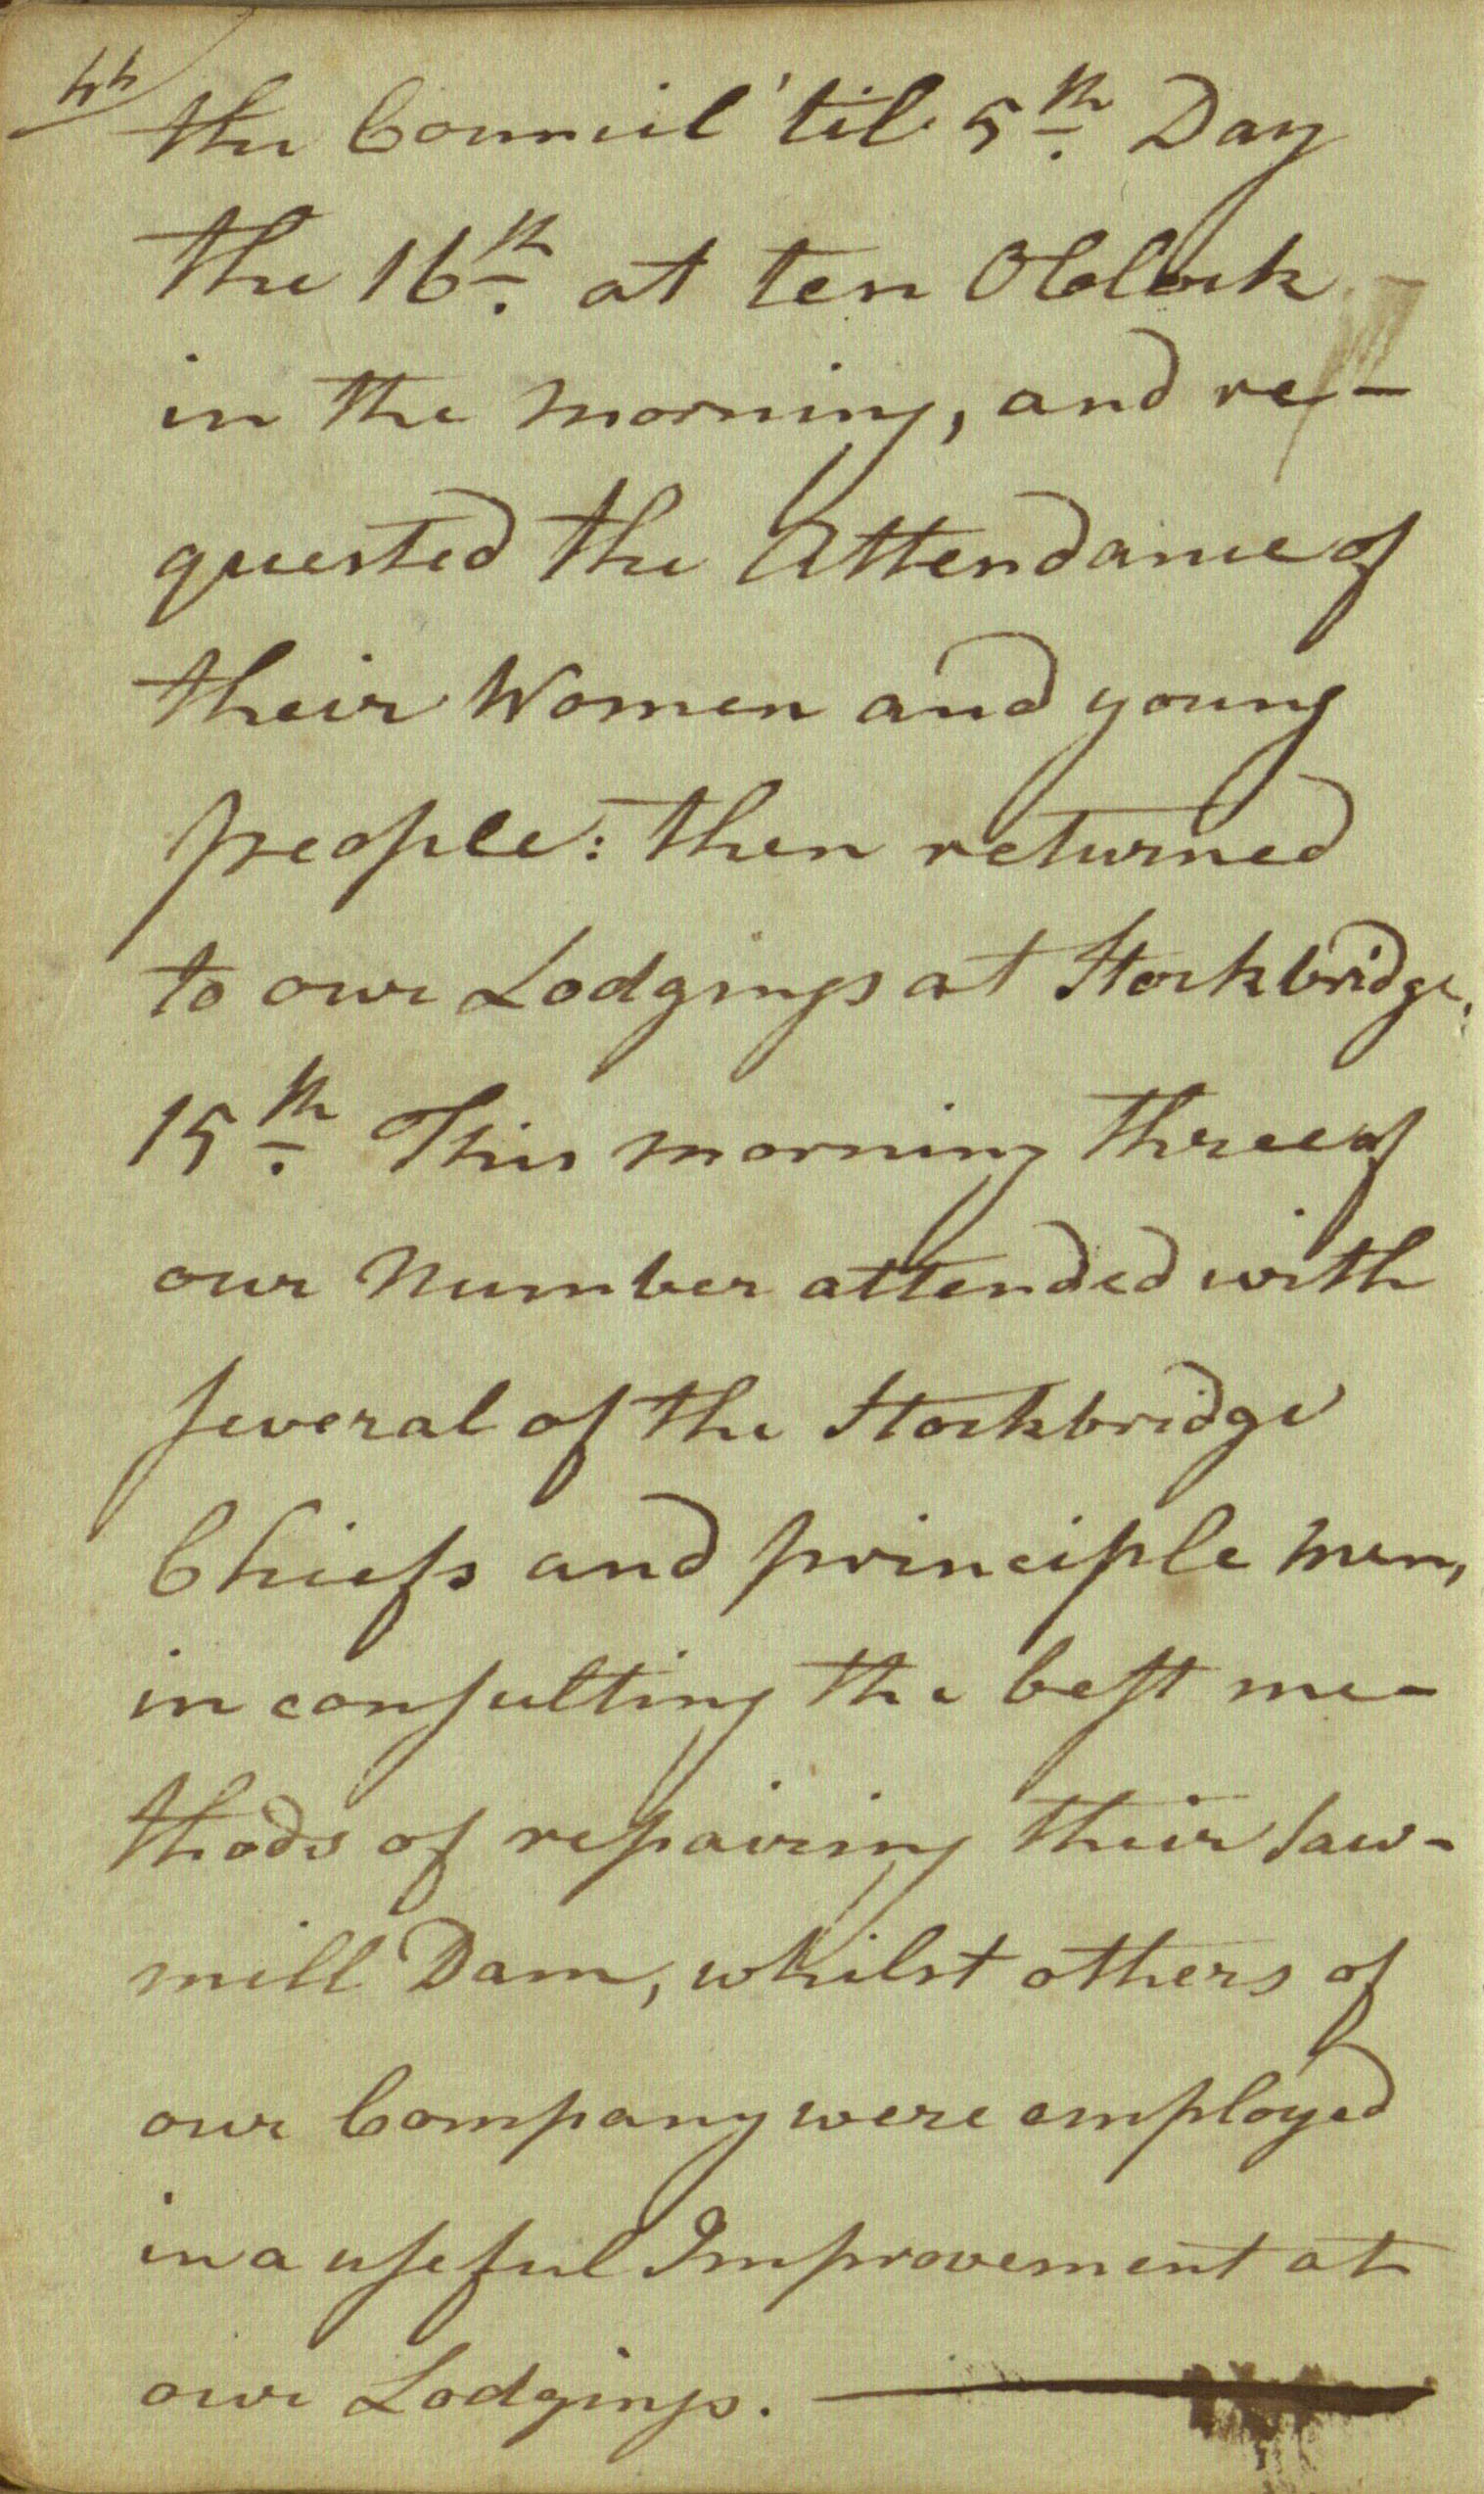 44
the Council 'til 5th Day
the 16th at ten OClock
in the morning, and re-
quested the Attendance of
their Women and young
people: then returned
to our Lodgings at Stockbridge.
15th This morning three of
our Number attended with
several of the Stockbridge
Chiefs and principle men,
in consulting the best me-
thods of repairing their saw-
mill Dam, whilst others of
our Company were employed
in a useful Improvement at
our Lodgings.